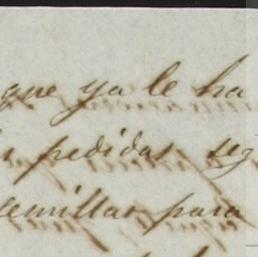 que ya le ha
pedidas seg
semillas para